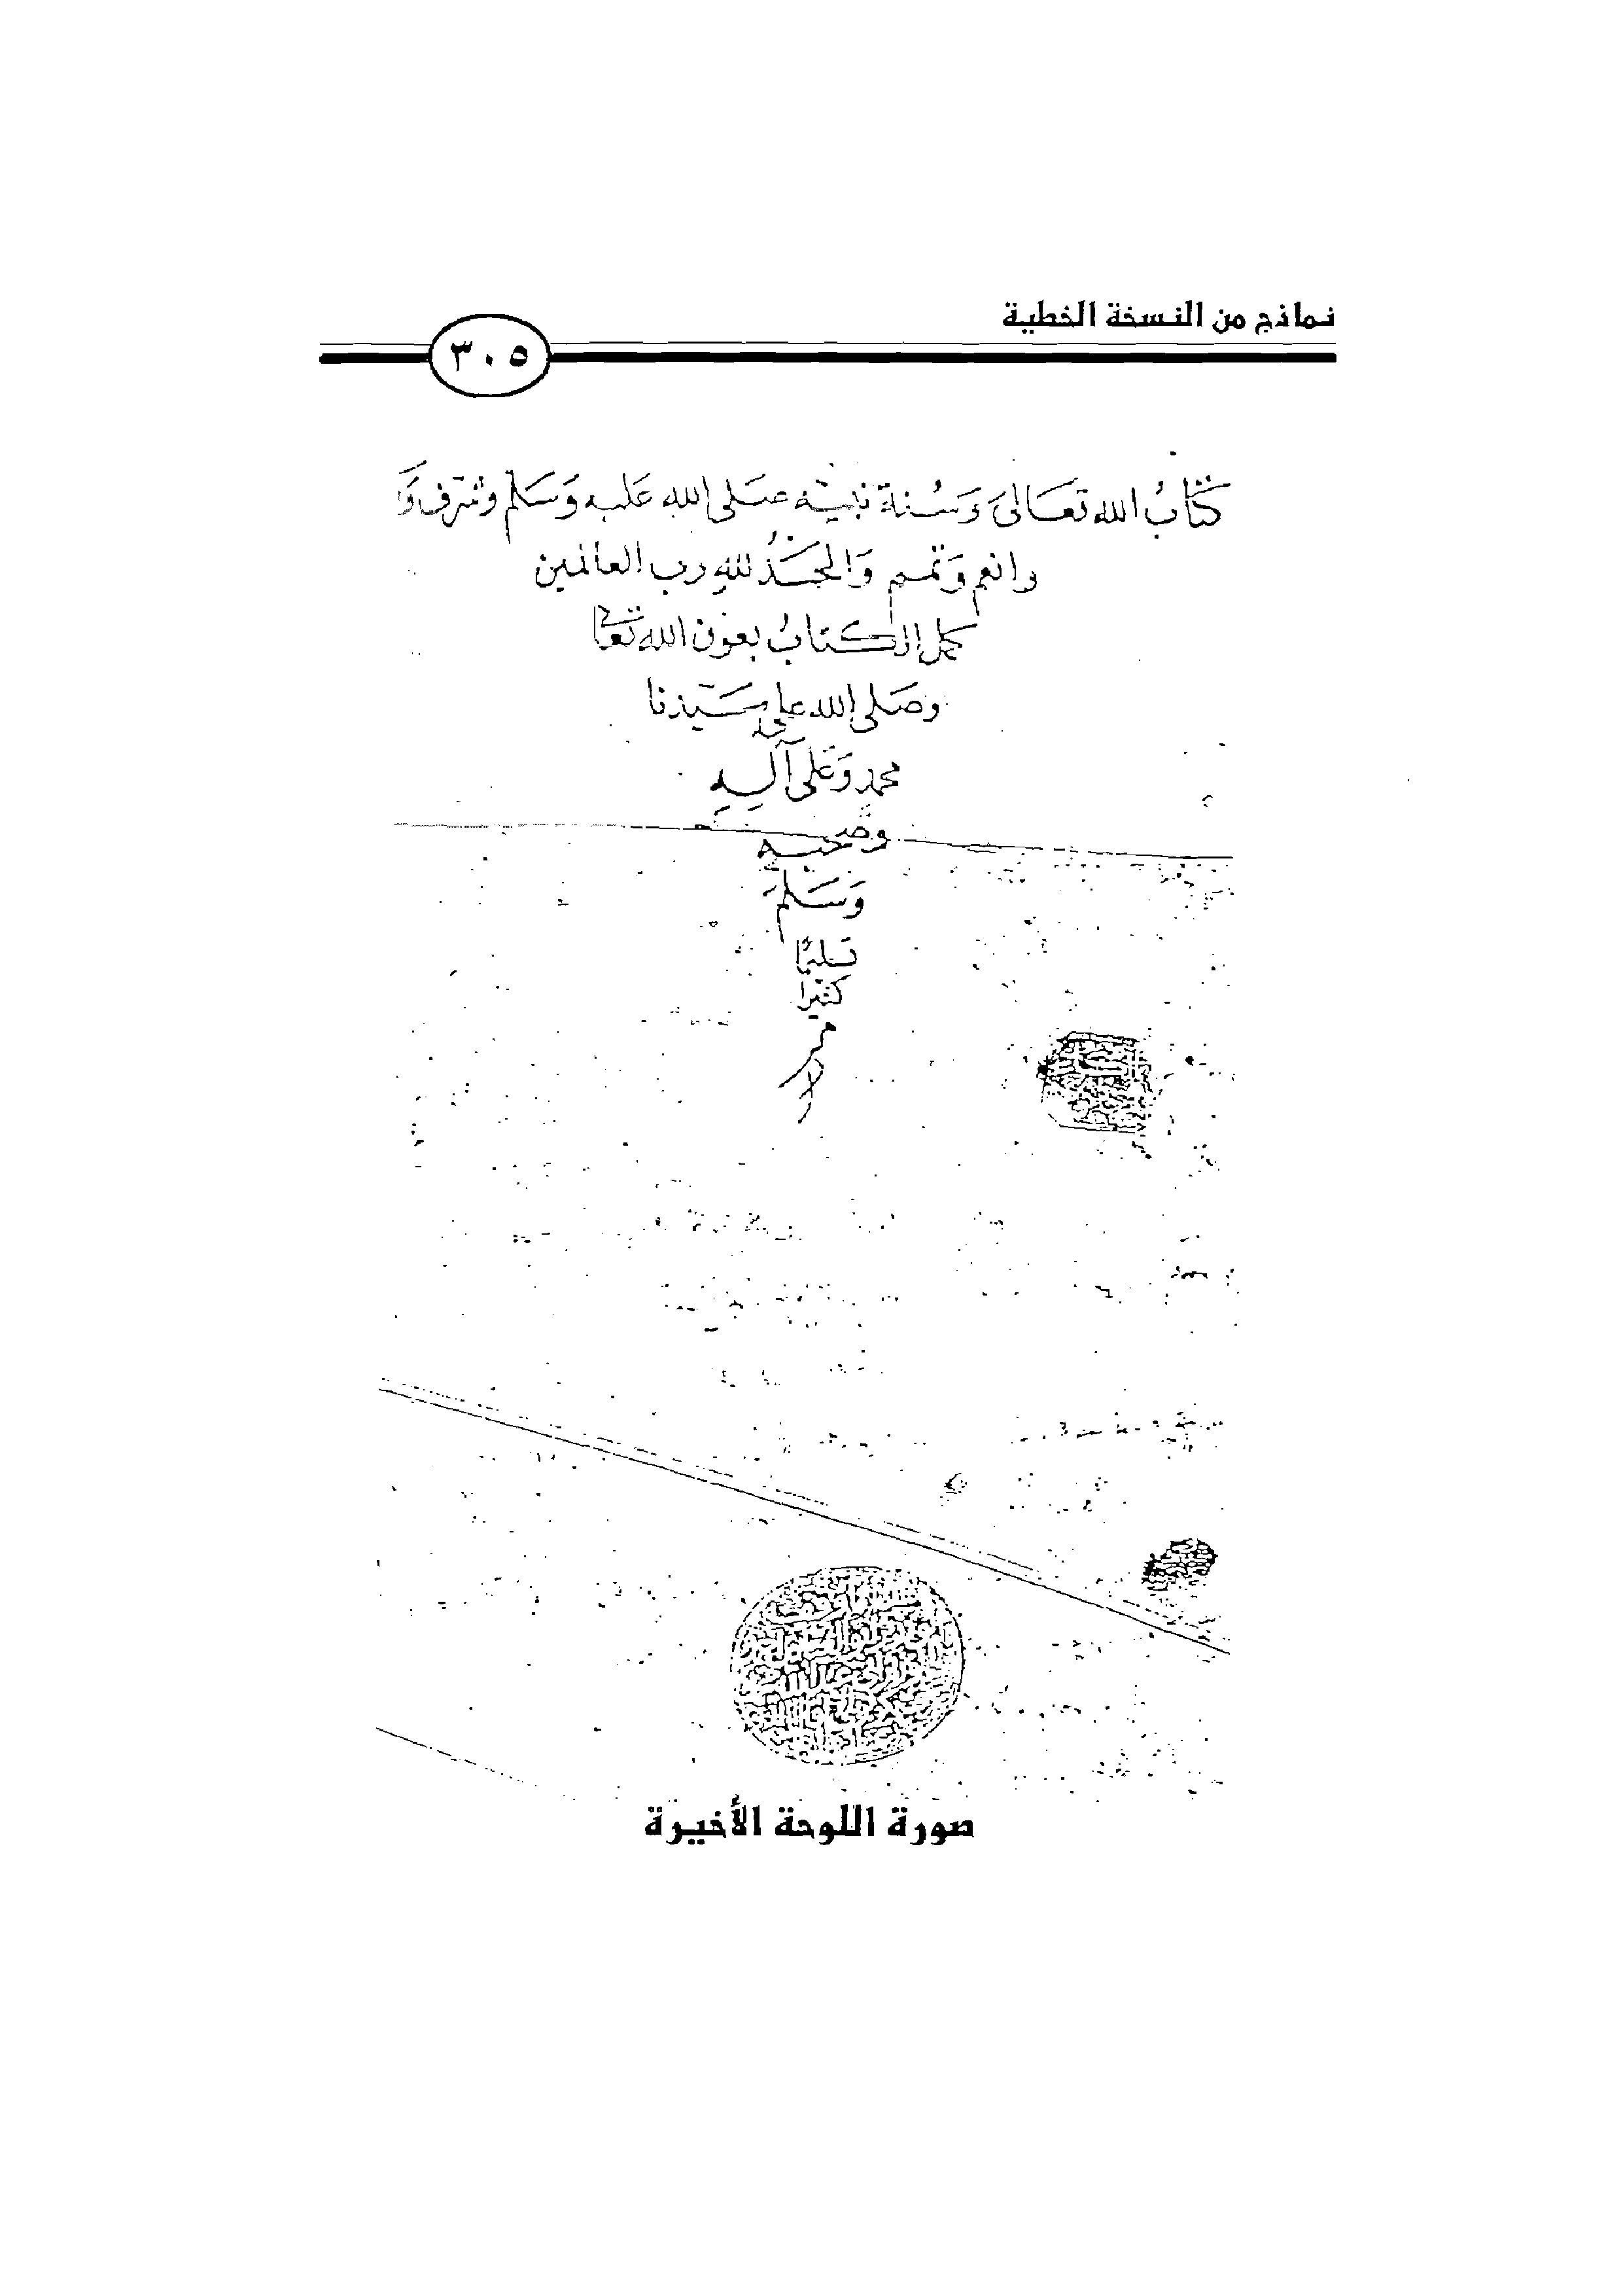 نماذج من النسخة الخطية
٣٠٥
كتابُ الله تعَالىَ وَسُنة نبيّه صَلى الله عَليه وَسَلم وشرّف وَ
وانعم وَتمم وَالحمدُ لله رب العالمين
كمل الكتابُ بعون الله تعَا
وصَلى الله على سَيّدنا
محمد وَعَلى آله
وصَحبه
وَسَلم
تسليمًا
كثيرا
صورة اللوحة الأخيرة